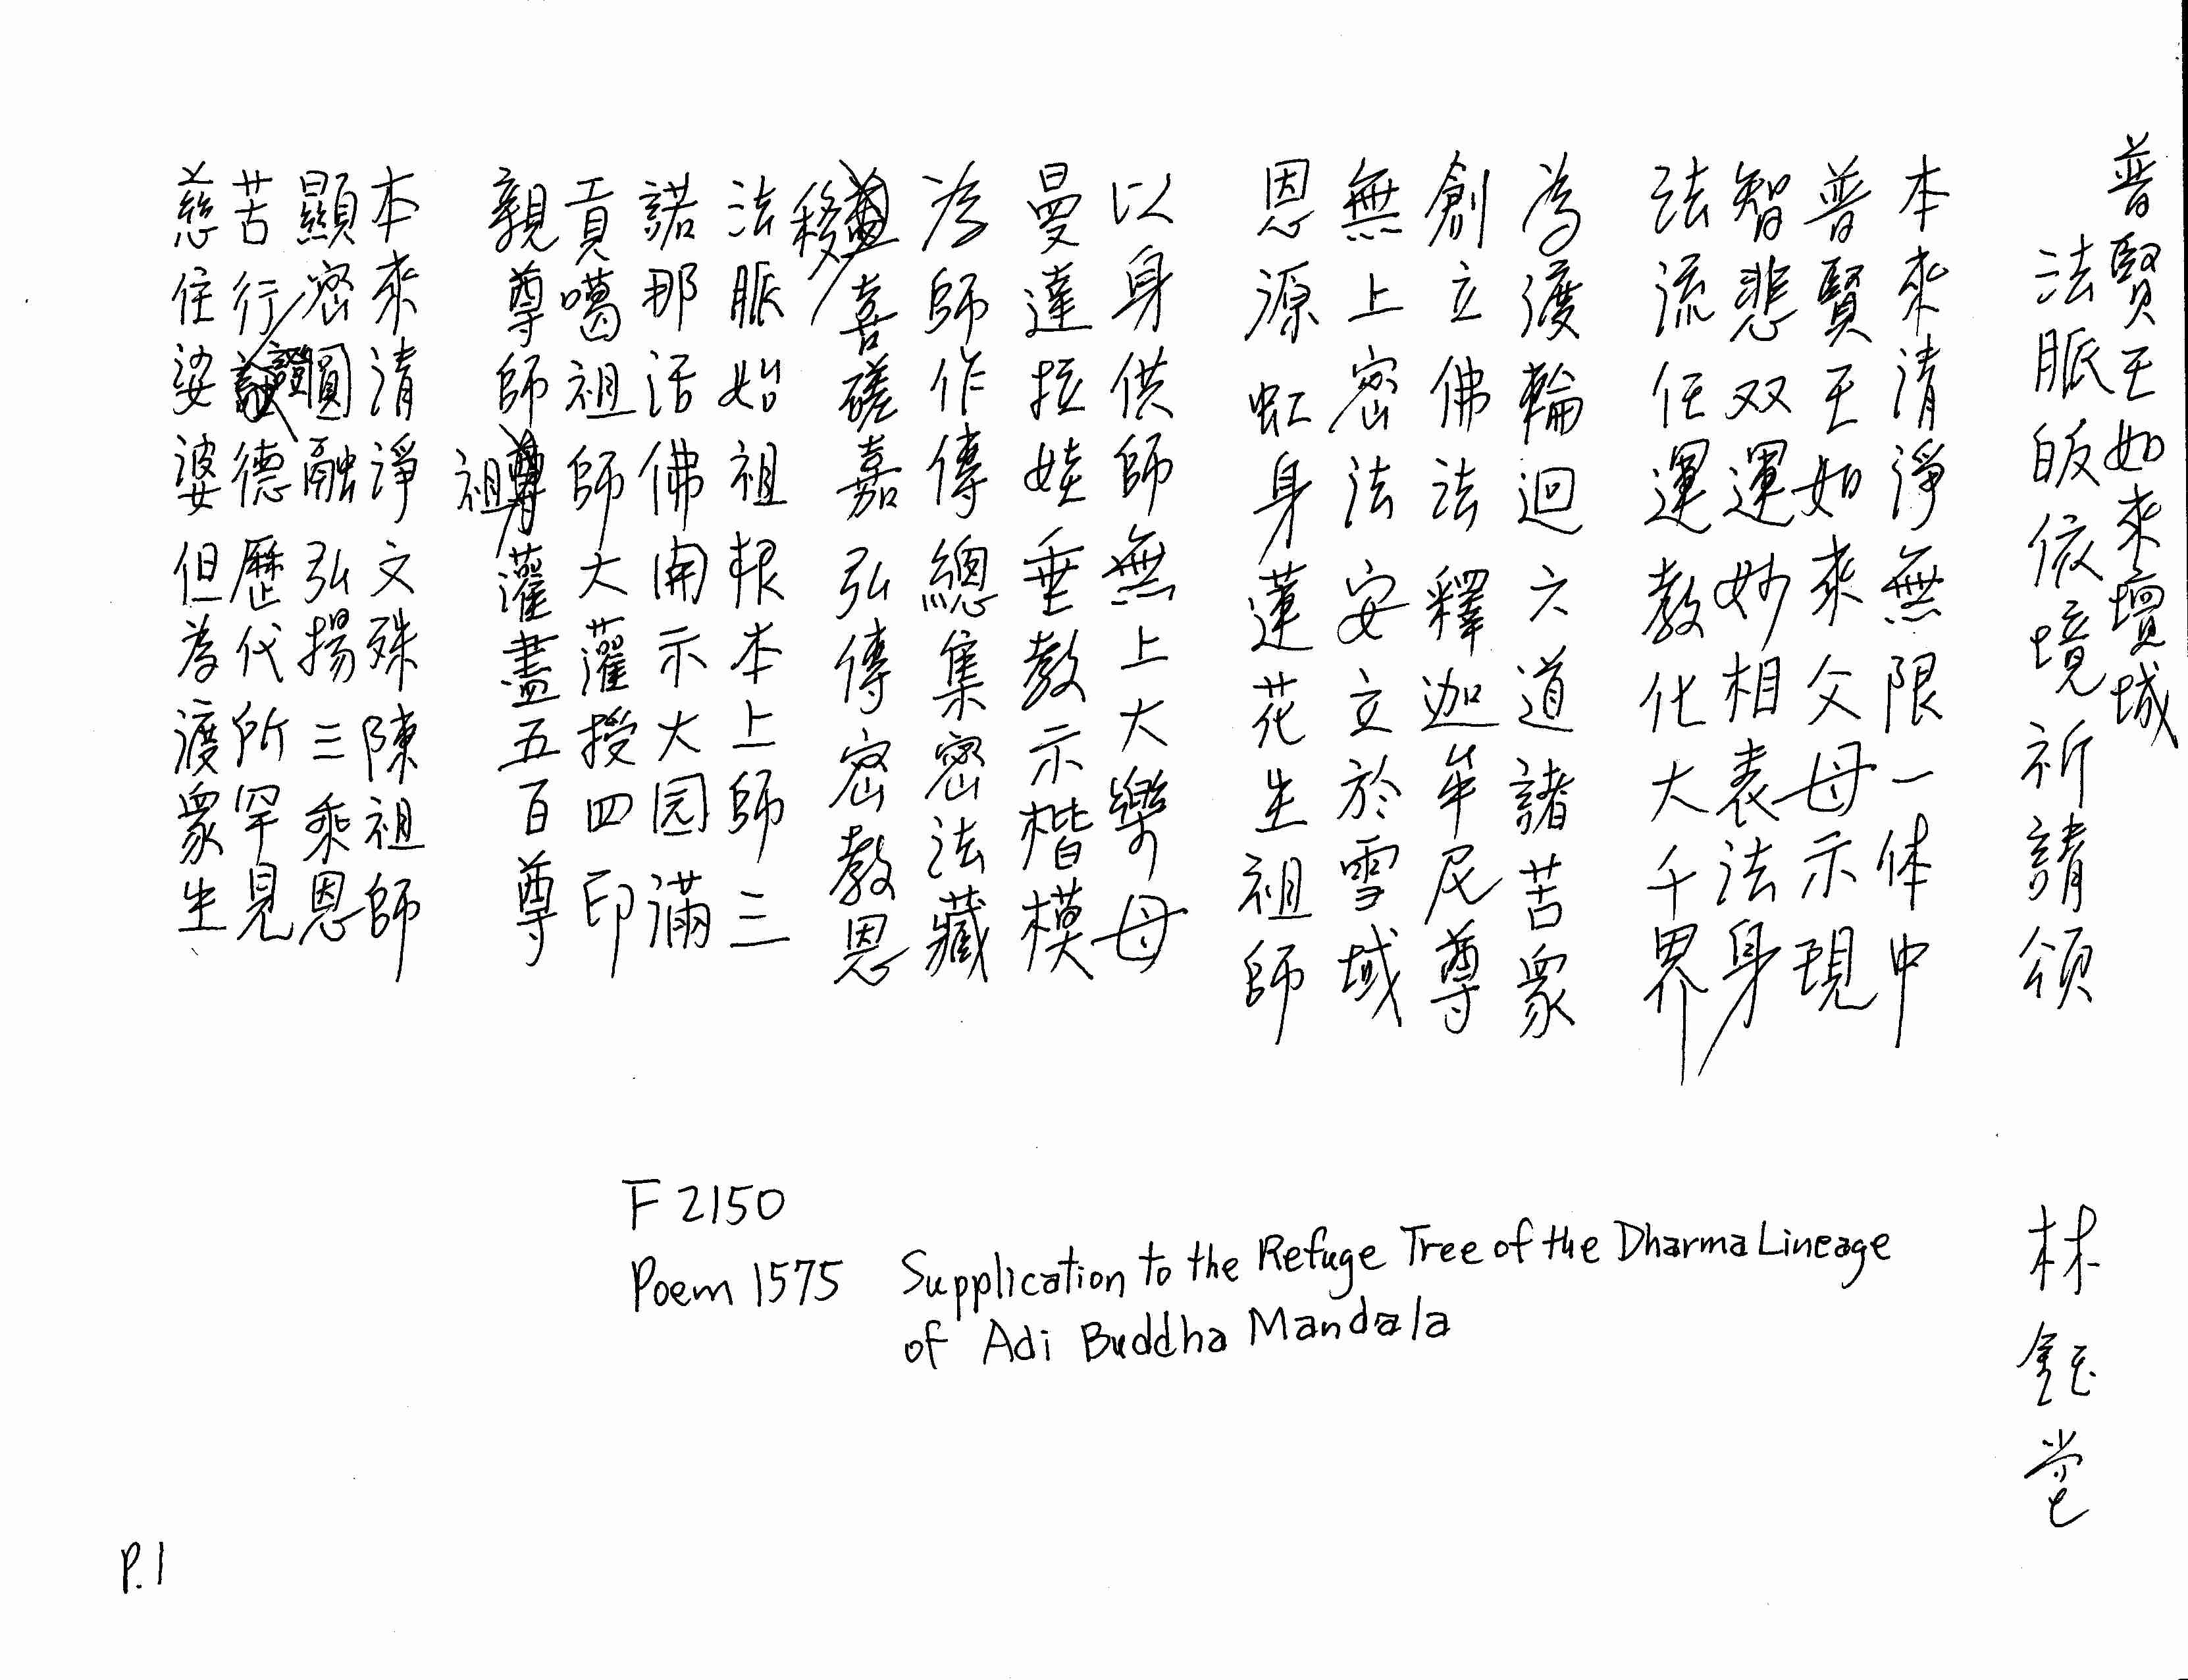 普賢王如來壇城
法脈皈依境祈請頌
林鈺堂
本來清淨無限一体中
普賢王如來父母示現
智悲双運妙相表法身
法流任運教化大千界
為渡輪迴六道諸苦眾
創立佛法釋迦牟尼尊
無上密法安立於雪域
恩源虹身蓮花生祖師
以身供師無上大樂母
曼達拉娃垂教示楷模
為師作傳總集密法藏
移喜磋嘉弘傳密教恩
法脈始祖根本上師三
諾那活佛開示大园滿
貢噶祖師大灌授四印
親尊師祖灌盡五百尊
本來清淨文殊陳祖師
顯密圓融弘揚三乘恩
苦行證德歷代所罕見
慈住娑婆但為渡眾生
F 2150
Poem 1575 Supplication to the Refuge Tree of the Dharma Lineage
of Adi Buddha Mandala
P.1